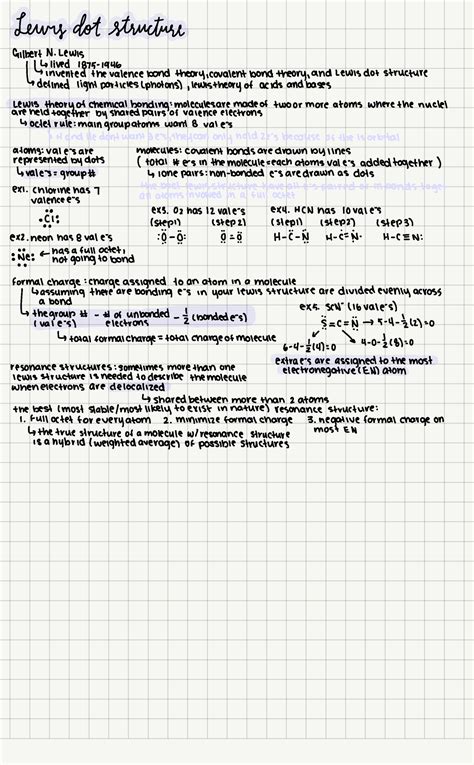 Lewis dot structure
Gilbert N. Lewis
↳ lived 1875-1946
↳ invented the valence bond theory, covalent bond theory, and Lewis dot structure
↳ defined light particles (photons), lewis theory of acids and bases
Lewis theory of chemical bonding: molecules are made of two or more atoms where the nuclei
are held together by shared pairs of valence electrons
↳ octet rule: main group atoms want 8 val e⁻s
↳ H and He don't want 8 e⁻s, they can only hold 2 e⁻s because of the 1s orbital
atoms: val e⁻s are represented by dots
↳ val e⁻s = group #
molecules: covalent bonds are drawn by lines
( total # e⁻s in the molecule = each atoms val e⁻s added together )
↳ lone pairs: non-bonded e⁻s are drawn as dots
the best lewis structure have all e⁻s paired or in bonds
an atoms involved in a full octet
ex1. chlorine has 7
valence e⁻s
:Cl:
ex2. neon has 8 val e⁻s
:Ne: ← has a full octet,
not going to bond
ex3. O₂ has 12 val e⁻s
(step 1) (step 2)
:O-O: O=O
ex4. HCN has 10 val e⁻s
(step 1) (step 2) (step 3)
H-C-N H-C=N· H-C≡N:
formal charge: charge assigned to an atom in a molecule
↳ assuming there are bonding e⁻s in your lewis structure are divided evenly across
a bond
↳ the group # - # of unbonded - 1/2 (bonded e⁻s)
(val e⁻s) electrons
↳ total formal charge = total charge of molecule
ex5. SCN⁻ (16 val e⁻s)
S=C=N → 5-4-1/2(2)=0
6-4-1/2(4)=0 4-0-1/2(8)=0
extra e⁻s are assigned to the most
electronegative (EN) atom
resonance structures: sometimes more than one
lewis structure is needed to describe the molecule
when electrons are delocalized
↳ shared between more than 2 atoms
the best (most stable/most likely to exist in nature) resonance structure:
1. full octet for every atom 2. minimize formal charge 3. negative formal charge on
most EN
↳ the true structure of a molecule w/ resonance structure
is a hybrid (weighted average) of possible structures